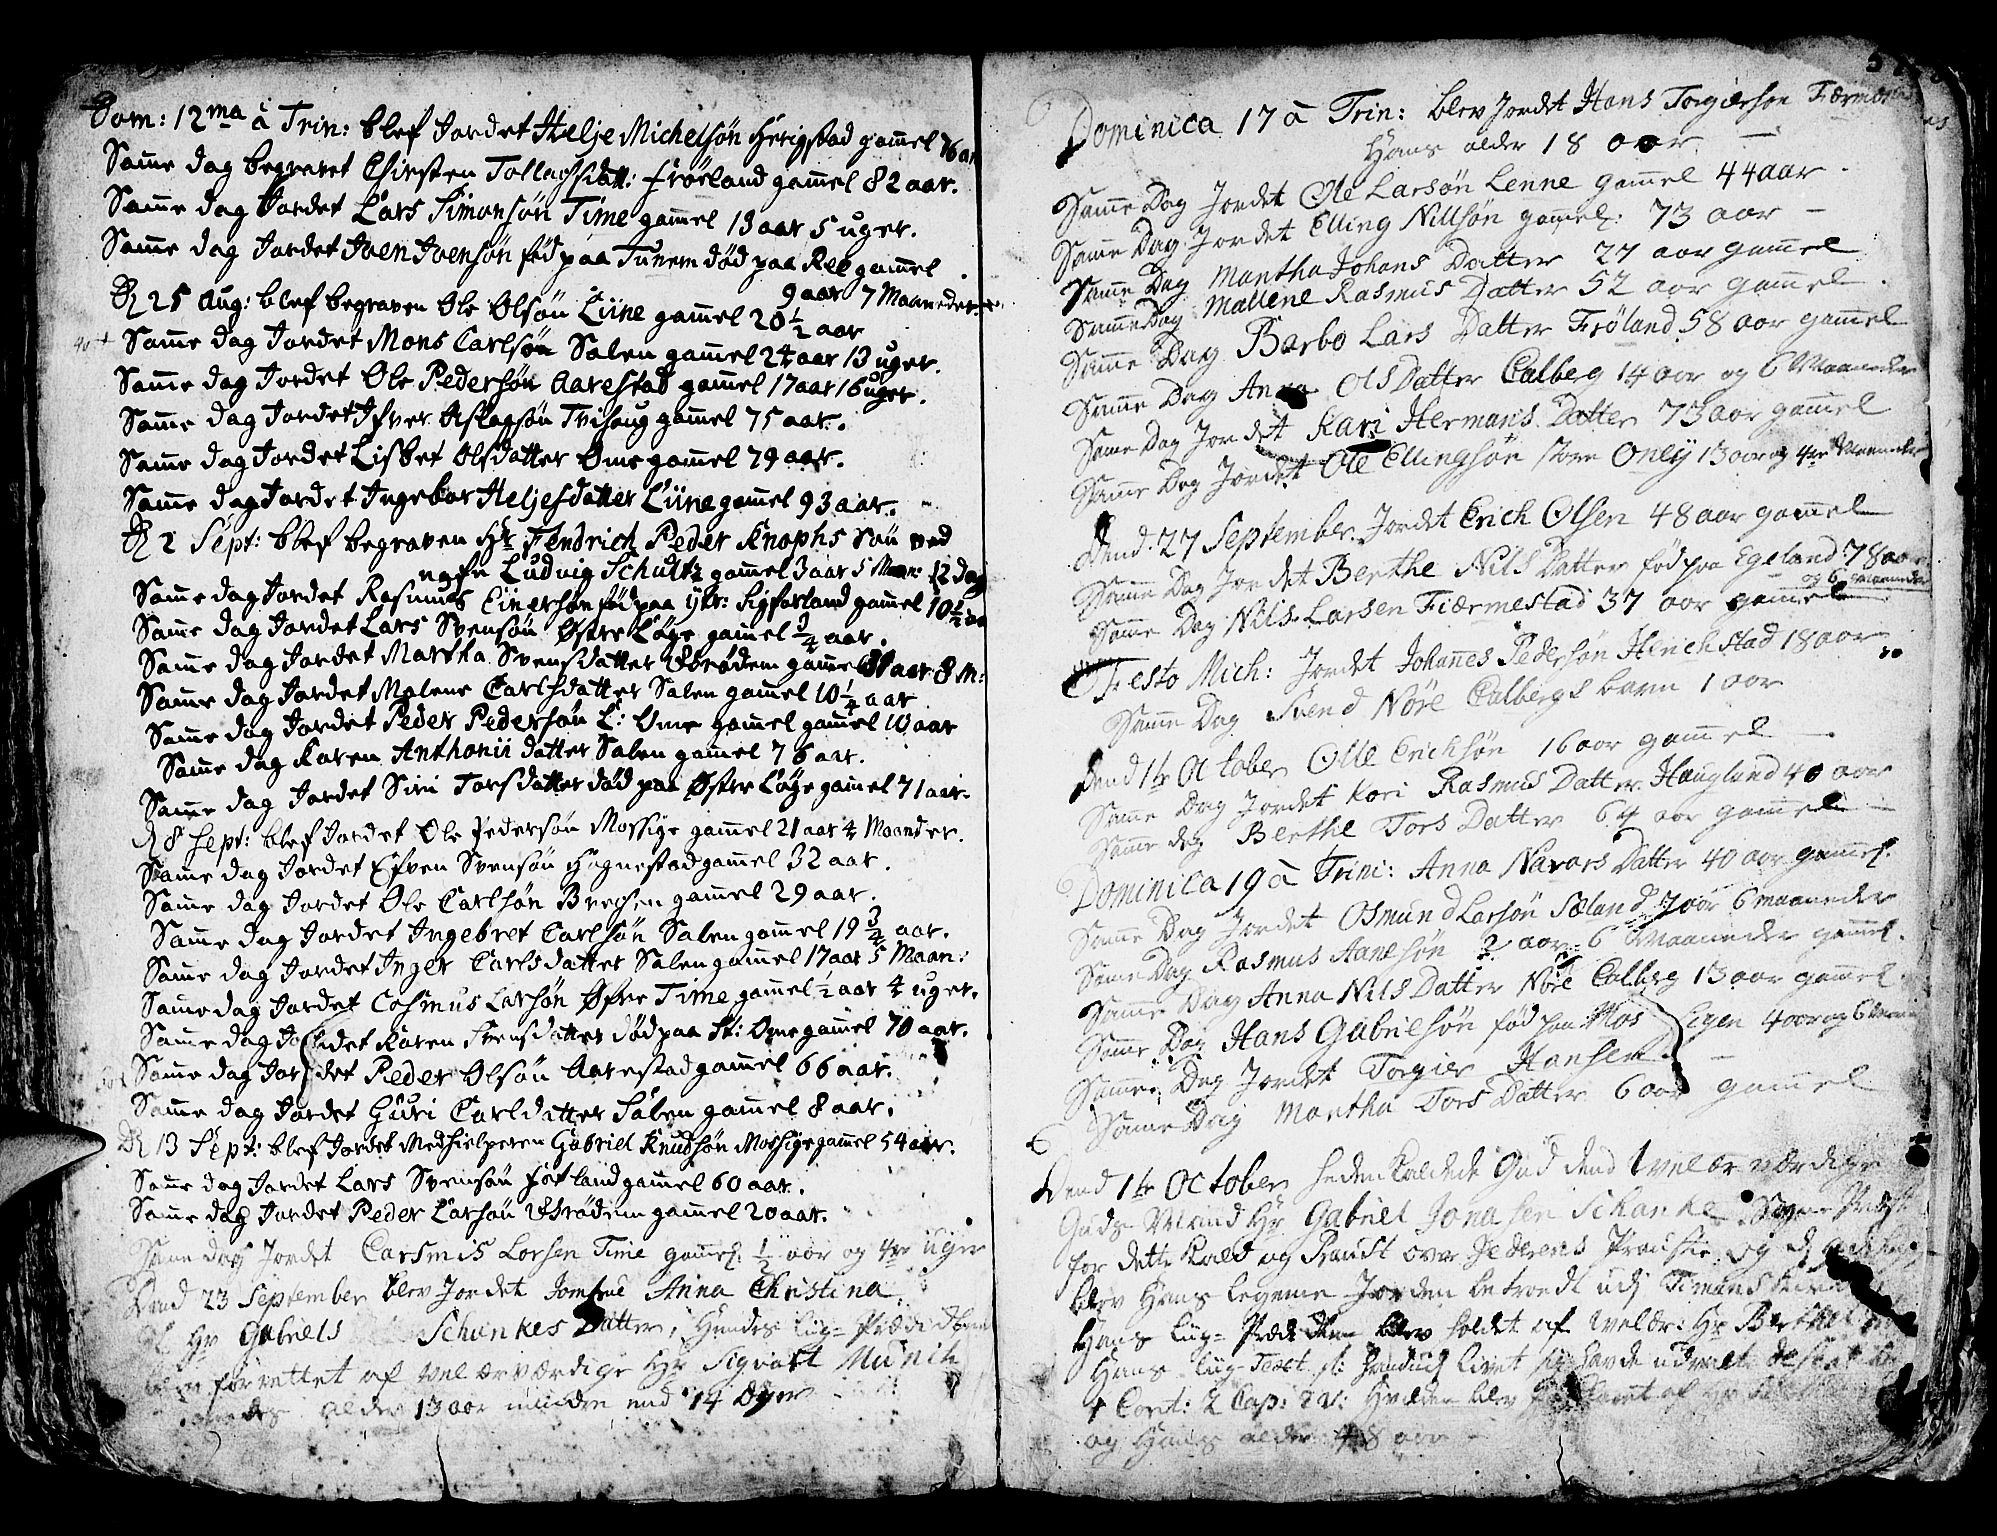 Dom: 12ma à Trin: blef Jordet Helje Michelsøn Herigstad gamel 76 aar
Same dag begravet Chirsten Tollagsdatt: Frøeland gamel 82 aar.
Same dag Jordet Lars Simonsøn Time gamel 13 aar 5 uger.
Same dag Jordet Joen Joensøn fød paa Tunem død paa Ree gamel
9 aar 7 Maaneder
D 25 Aug: blef begraven Ole Olsøn Liine gamel 20 1/2 aar
Same dag Jordet Mons Carlsøn Salen gamel 24 aar 13 uger.
Same dag Jordet Ole Pedersøn Aarestad gamel 17 aar 16 uger.
Same dag Jordet Ifver Aslagsøn Tvihaug gamel 75 aar.
Same dag Jordet Lisbet Olsdatter Ome gamel 79 aar.
Same dag Jordet Ingebor Heljesdatter Liine gamel 93 aar.
D 2 Sept: blef begraven Hr Fendrich Peder Knophs Søn ved
nafn Ludvig Schultz gamel 3 aar 5 Maan: 12 dag
Same dag Jordet Rasmus Einersøn fød paa ytr: Sigforland gamel 10 1/2 aar
Same dag Jordet Lars Svensøn Østre Løge gamel 3/4 aar.
Same dag Jordet Martha Svensdatter Ubrødem gamel 31 aar 8 M:
Same dag Jordet Malene Carlsdatter Salen gamel 10 1/4 aar
Same dag Jordet Peder Pedersøn L: Ome gamel gamel 10 aar
Same dag Karen Anthonii datter Salen gamel 76 aar.
Same dag Jordet Siri Torsdatter død paa Østre Løge gamel 71 aar.
D 8 Sept: blef Jordet Ole Pedersøn Mossige gamel 21 aar 4 Maaneder.
Same dag Jordet Efven Svensøn Høgnestad gamel 32 aar.
Same dag Jordet Ole Carlsøn Brechen gamel 29 aar.
Same dag Jordet Ingebret Carlsøn Salen gamel 19 3/4 aar.
Same dag Jordet Inger Carlsdatter Salen gamel 17 aar 5 Maan:
Same dag Jordet Cosmus Larsøn Øfre Time gamel 1/2 aar 4 uger.
Same dag Jordet Karen Svensdatter død paa St: Ome gamel 70 aar.
Same dag Jordet Peder Olsøn Aarestad gamel 66 aar.
Same dag Jordet Guri Carldatter Salen gamel 8 aar.
D 13 Sept: blef Jordet Medhielperen Gabriel Knudsøn Mossige gamel 54 aar.
Same dag Jordet Lars Svensøn Hotland gamel 60 aar.
Same dag Jordet Peder Larsøn Ubrødem gamel 20 aar.
Same dag Jordet Carsmus Larsen Time gamel: 1/2 aar og 4re uger
Dend 23 September blev Jordet Jomfrue Anna Christina
Hr Gabriels Schankes Datter, Hendes Liig-Prædicken
blev forrettet af Vel ærværdige Hr Sigvart Munch
Hendes alder 13 aar mindre end 14 dager
Dominica 17 à Trin: blev Jordet Hans Torgiersøn Fiærmestad
Hans alder 18 aar
Same Dag Jordet Ole Larsøn Lenne gamel 44 aar
Same Dag Jordet Elling Nillsøn gamel: 73 aar
Same Dag Mantha Johans Datter 27 aar gamel
Same Dag Mallene Rasmus Datter 52 aar gamel
Same Dag Barbo Lars Datter Frøland 58 aar gamel
Same Dag Anna Ols Datter Calberg 14 aar og 6 Maaneder
Same Dag Jordet Kari Hermans Datter 73 aar gamel
Same Dag Jordet Ole Ellingsøn store Onely 13 aar og 4re Maaneder
Dend. 27 September. Jordet Erich Olsen 48 aar gamel
Same Dag Jordet Berthe Nils Datter fød paa Egeland 78 aar
og 6 Maaneder
Same Dag Nils Larsen Fiærmestad 37 aar gamel
Festo Mich: Jordet Johannes Pedersøn Hinichstad 18 aar
Same Dag Svend Nøre Calbergs barn 1 aar
Dend 1te October Olle Erichsøn 16 aar gamel
Same Dag Jordet Kari Rasmus Datter Haugland 40 aar
Same dag Berthe Tors Datter 64 aar gamel
Dominica 19 à Trini: Anna Navars Datter 40 aar gamel.
Same Dag Jordet Osmund Larsøn Sæland 7 aar 6 maaneder
Same Dag Rasmus Aanesøn 2 aar 6 Maaneder gamel.
Same Dag Anna Nils Datter Nøre Calberg 13 aar gamel
Same Dag Hans Gabrielsøn fød paa Mos Egen 4 aar og 6 Maan
Same Dag Jordet Torgier Hansen
Same Dag Mantha Tors Datter 6 aar gamel
Dend 1te October hedenkaldede Gud dend Vel ærværdige
Guds Mand Hr Gabriel Jonasen Schanke Sogne Præst
for dette kald og Praust over Jederens Praustie og d
blev Hans legeme Jorden betroedt udj Timens kirke
Hans Liig-Prædicken blev holdet af Velær: Hr Berthel
Hans Liig-Text
1 Corit: 2 Cap: 2 v: Hvilken blev af Hr
og Hans alder 48 aar